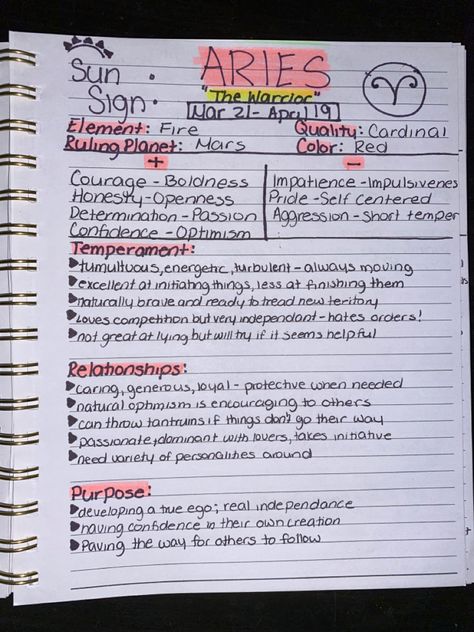 Sun
Sign.
ARIES
"The Warrior"
Mar 21 - April 19
Element: Fire
Quality: Cardinal
Ruling Planet: Mars
Color: Red
+
-
Courage - Boldness
Honesty - Openness
Determination - Passion
Confidence - Optimism
Impatience - Impulsivenes
Pride - Self centered
Aggression - Short temper
Temperament:
tumultuous, energetic, turbulent - always moving
excellent at initiating things, less at finishing them
naturally brave and ready to tread new teritory
Loves competition but very independant - hates orders!
not great at lying but will try if it seems helpful
Relationships:
caring, generous, loyal - protective when needed
natural optimism is encouraging to others
can throw tantrums if things don't go their way
passionate + dominant with lovers, takes initiative
need variety of personalities around
Purpose:
developing a true ego; real independance
having confidence in their own creation
Paving the way for others to follow